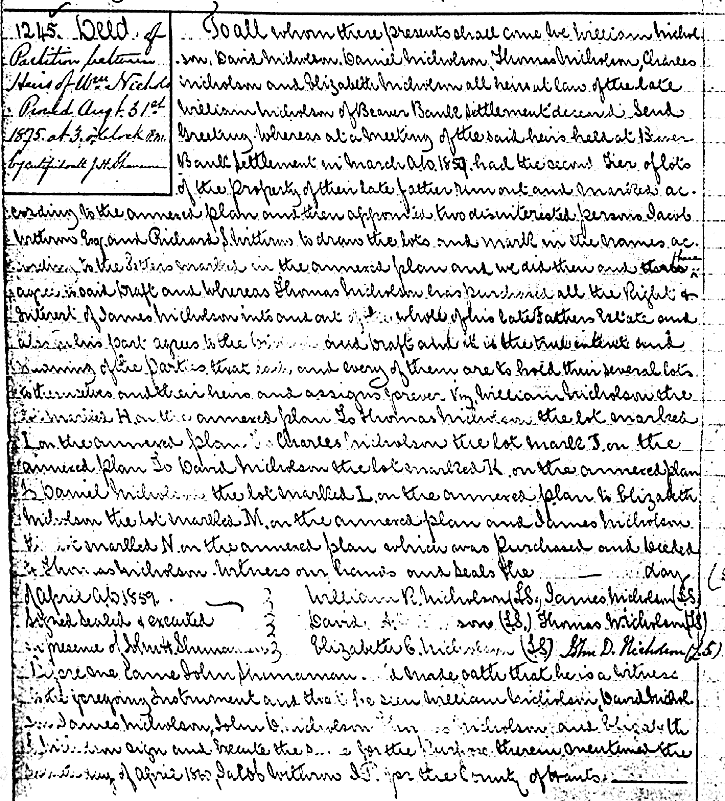 1245. Deed of
Partition between
Heirs of Wm Nichols
Proved Augt. 31st
1875. at 3. o'clock P.M.
by affidavit J.H. Shunaman
To all whom these presents shall come We William Nichol
son, David Nicholson, Daniel Nicholson, Thomas Nicholson, Charles
Nicholson and Elizabeth Nicholson all heirs at law of the late
William Nicholson of Beaver Bank Settlement deceased Send
Greeting Whereas at a meeting of the said heirs held at Beaver
Bank Settlement in March A.D. 1859. had the second Tier of lots
of the property of their late father run out and marked ac-
cording to the annexed plan and then appointed two disinterested persons Jacob
Withrow Esq and Richard J. Withrow to draw the lots and mark in the names ac-
cording to the letters marked in the annexed plan and we did then and there
agree to said Draft and whereas Thomas Nicholson has purchased all the Right &
Interest of James Nicholson into and out of the whole of his late Fathers Estate and
also on his part agrees to the and Draft and it is the true intent and
meaning of the Parties that each and every of them are to hold their several lots
to themselves and their heirs and assigns forever Viz, William Nicholson the
lot marked H. on the annexed plan To Thomas Nicholson the lot marked
I. on the annexed plan To Charles Nicholson the lot mark J. on the
annexed plan To David Nicholson the lot marked K. on the annexed plan
To Daniel Nicholson the lot marked L. on the annexed plan to Elizabeth
Nicholson the lot marked M. on the annexed plan and James Nicholson
lot marked N. on the annexed plan which was purchased and deeded
to Thomas Nicholson Witness our hands and Seals the — day
of April A.D. 1859. William R. Nicholson (LS), James Nicholson (LS)
Signed Sealed & executed David son (LS) Thomas Nicholson (LS)
in presence of John H Shunaman Elizabeth C. Nicholson (LS) John D. Nicholson (LS)
Before me Came John Shunaman made oath that he is a witness
to the foregoing Instrument and that he seen William Nicholson, David Nichol
son James Nicholson, John D. Nicholson Thomas Nicholson, and Elizabeth
Nicholson sign and Execute the for the Purpose therein mentioned the
day of April Jacob Withrow J.P. for the County of Hants.